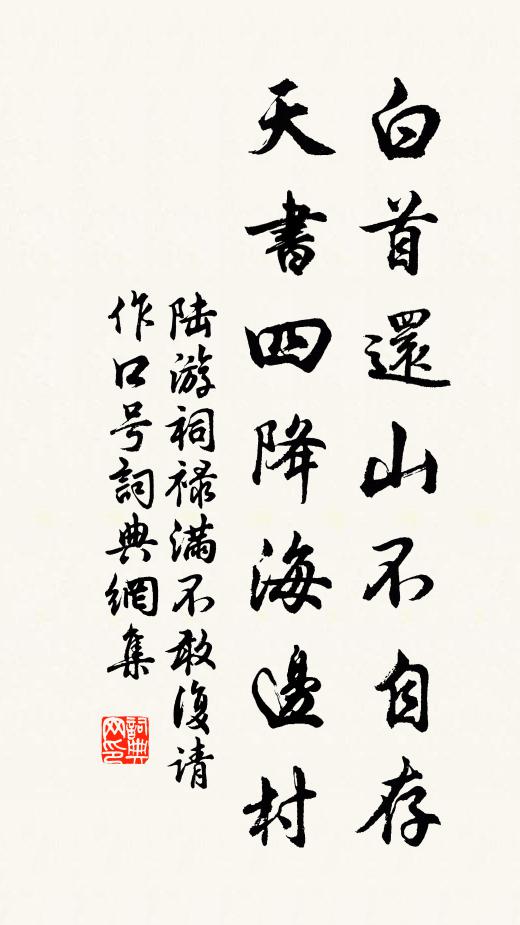 白首還山不自存
天書四降海邊村
陆游祠禄滿不敢復请
作口号詞典網集
詞典
网印